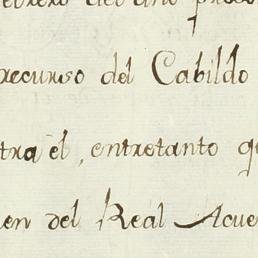 del año
recurso del Cabildo
tra él, entretanto q
en del Real Acue